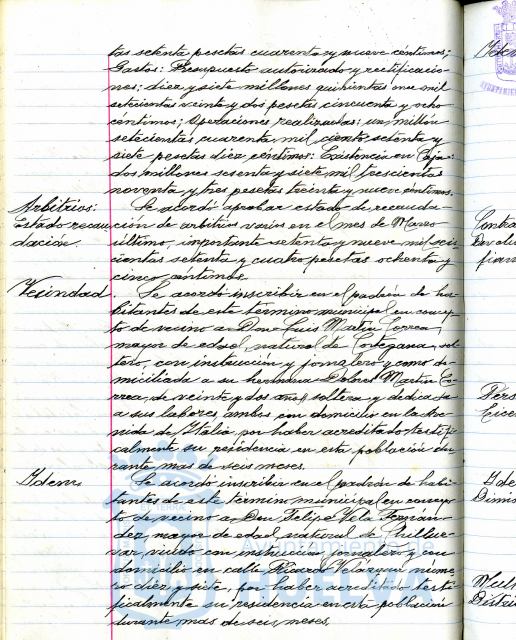 tas setenta pesetas cuarenta y nueve céntimos;
Gastos: Presupuesto autorizado y rectificacio-
nes; diez y siete millones quinientas once mil
setecientas veinte y dos pesetas cincuenta y ocho
céntimos; Operaciones realizadas: un millón
setecientas cuarenta mil ciento setenta y
siete pesetas diez céntimos: Existencia en Caja:
dos millones sesenta y siete mil trescientas
noventa y tres pesetas treinta y nueve céntimos.
Arbitrios:
Estado recau
dación.
Se acordó aprobar estado de recauda-
ción de arbitrios varios en el mes de Marzo
último, importante setenta y nueve mil seis-
cientas setenta y cuatro pesetas ochenta y
cinco céntimos.
Vecindad.
Se acordó inscribir en el padrón de ha-
bitantes de este término municipal en concep-
to de vecino a Don Luis Martín Correa,
mayor de edad, natural de Cortegana, sol-
tero, con instrucción y jornalero y como do-
miciliada a su hermana Dolores Martín Co-
rrea, de veinte y dos años, soltera y dedicada
a sus labores, ambos con domicilio en la Ave-
nida de Italia, por haber acreditado testifi-
calmente su residencia en esta población du-
rante mas de seis meses.
Idem.
Se acordó inscribir en el padrón de habi-
tantes de este término municipal en concep-
to de vecino a Don Felipe Vela Fernán-
dez, mayor de edad, natural de
var, viudo con instrucción, jornalero y con
domicilio en calle Ricardo Velázquez núme-
ro diez y siete, por haber acreditado testi-
ficalmente su residencia en esta población
durante mas de seis meses.
Ayuntamiento de
HUELVA